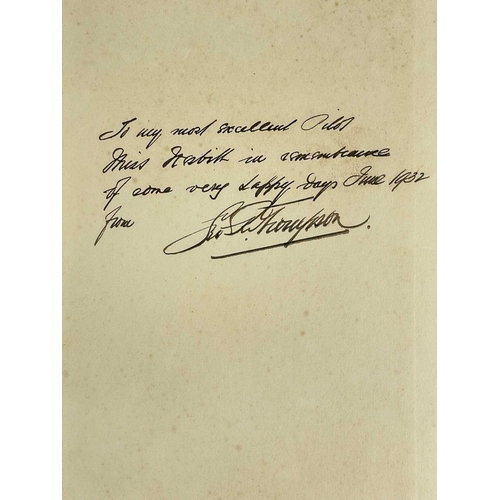 To my most excellent Pilot
Miss Nesbitt in remembrance
of some very happy days June 1932
from Geo. Thompson.